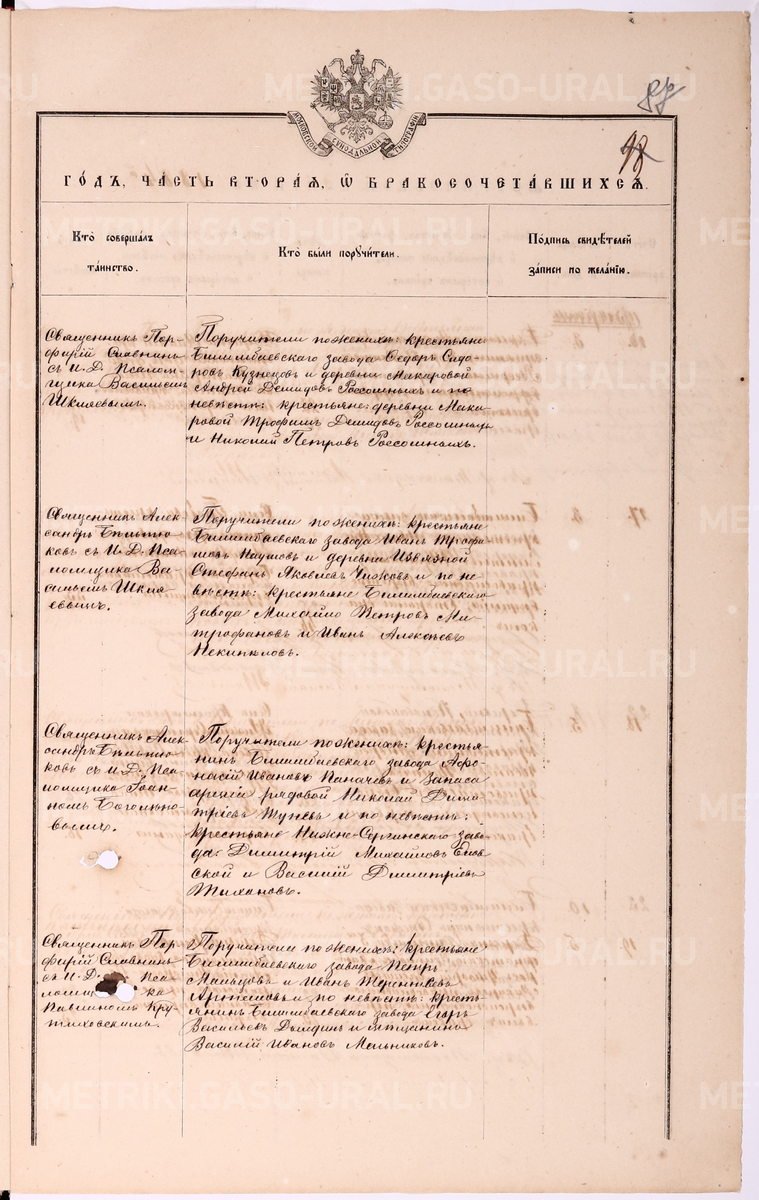 METRIKI.GASO-URAL.RU
МОСКОВСКОЙ СѴНОДАЛЬНОЙ ТИПОГРАФІИ
98
ГОДЪ, ЧАСТЬ ВТОРАЯ, Ѡ БРАКОСОЧЕТАВШИХСЯ.
Кто совершалъ
таинство.
Кто были поручители.
Подпись свидѣтелей
записи по желанію.
Священникъ Пор-
фирій Славнинъ
съ И. Д. Псалом-
щика Василіемъ
Шкляевымъ.
Поручители по женихѣ: крестьяне
Билимбаевскаго завода Ѳедоръ Сидо-
ровъ Кузнецовъ и деревни Макаровой
Андрей Демидовъ Россошныхъ и по
невѣстѣ: крестьяне деревни Мака-
ровой Трофимъ Демидовъ Россошныхъ
и Николай Петровъ Россошныхъ.
Священникъ Алек-
сандръ
съ И. Д. Пса-
ломщика Ва-
сильемъ Шкля-
евымъ.
Поручители по женихѣ: крестьяне
Билимбаевскаго завода Иванъ Трофи-
мовъ Наумовъ и деревни Извязной
Стефанъ Яковлевъ Чижовъ и по не-
вѣстѣ: крестьяне Билимбаевскаго
завода Михайло Петровъ Ми-
трофановъ и Иванъ Алексѣевъ
Некипѣловъ.
Священникъ Алек-
сандръ
съ И. Д. Пса-
ломщика Іоан-
номъ Боголюбо-
вымъ.
Поручители по женихѣ: кресть-
нинъ Билимбаевскаго завода Афо-
насій Ивановъ Паначевъ и запаса
арміи рядовой Николай Дими-
тріевъ и по невѣстѣ:
крестьяне Нижне-Сергинскаго заво-
да Димитрій Михайловъ
и Василій Димитріевъ
Тихановъ.
Священникъ Пор-
фирій Славнинъ
съ И. Д. Пса-
ломщика
Павлиномъ Кру-
тиховскимъ.
Поручители по женихѣ: крестьяне
Билимбаевскаго завода Петръ
Мальцовъ и Иванъ Терентьевъ
Артемовъ и по невѣстѣ: кресть-
янинъ Билимбаевскаго завода Егоръ
Васильевъ Дылдинъ и мѣщанинъ
Василій Ивановъ Мельниковъ.